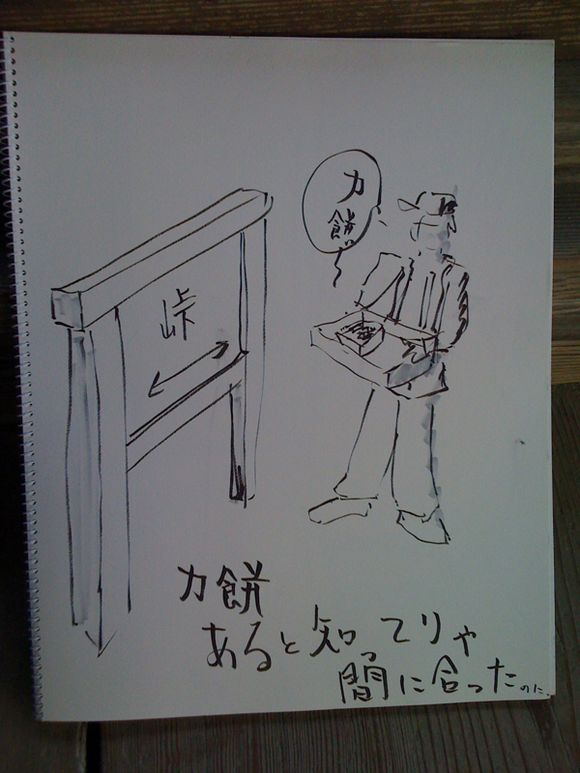 峠
力
餅
〜
力餅
あると知ってりゃ
間に合ったのに。